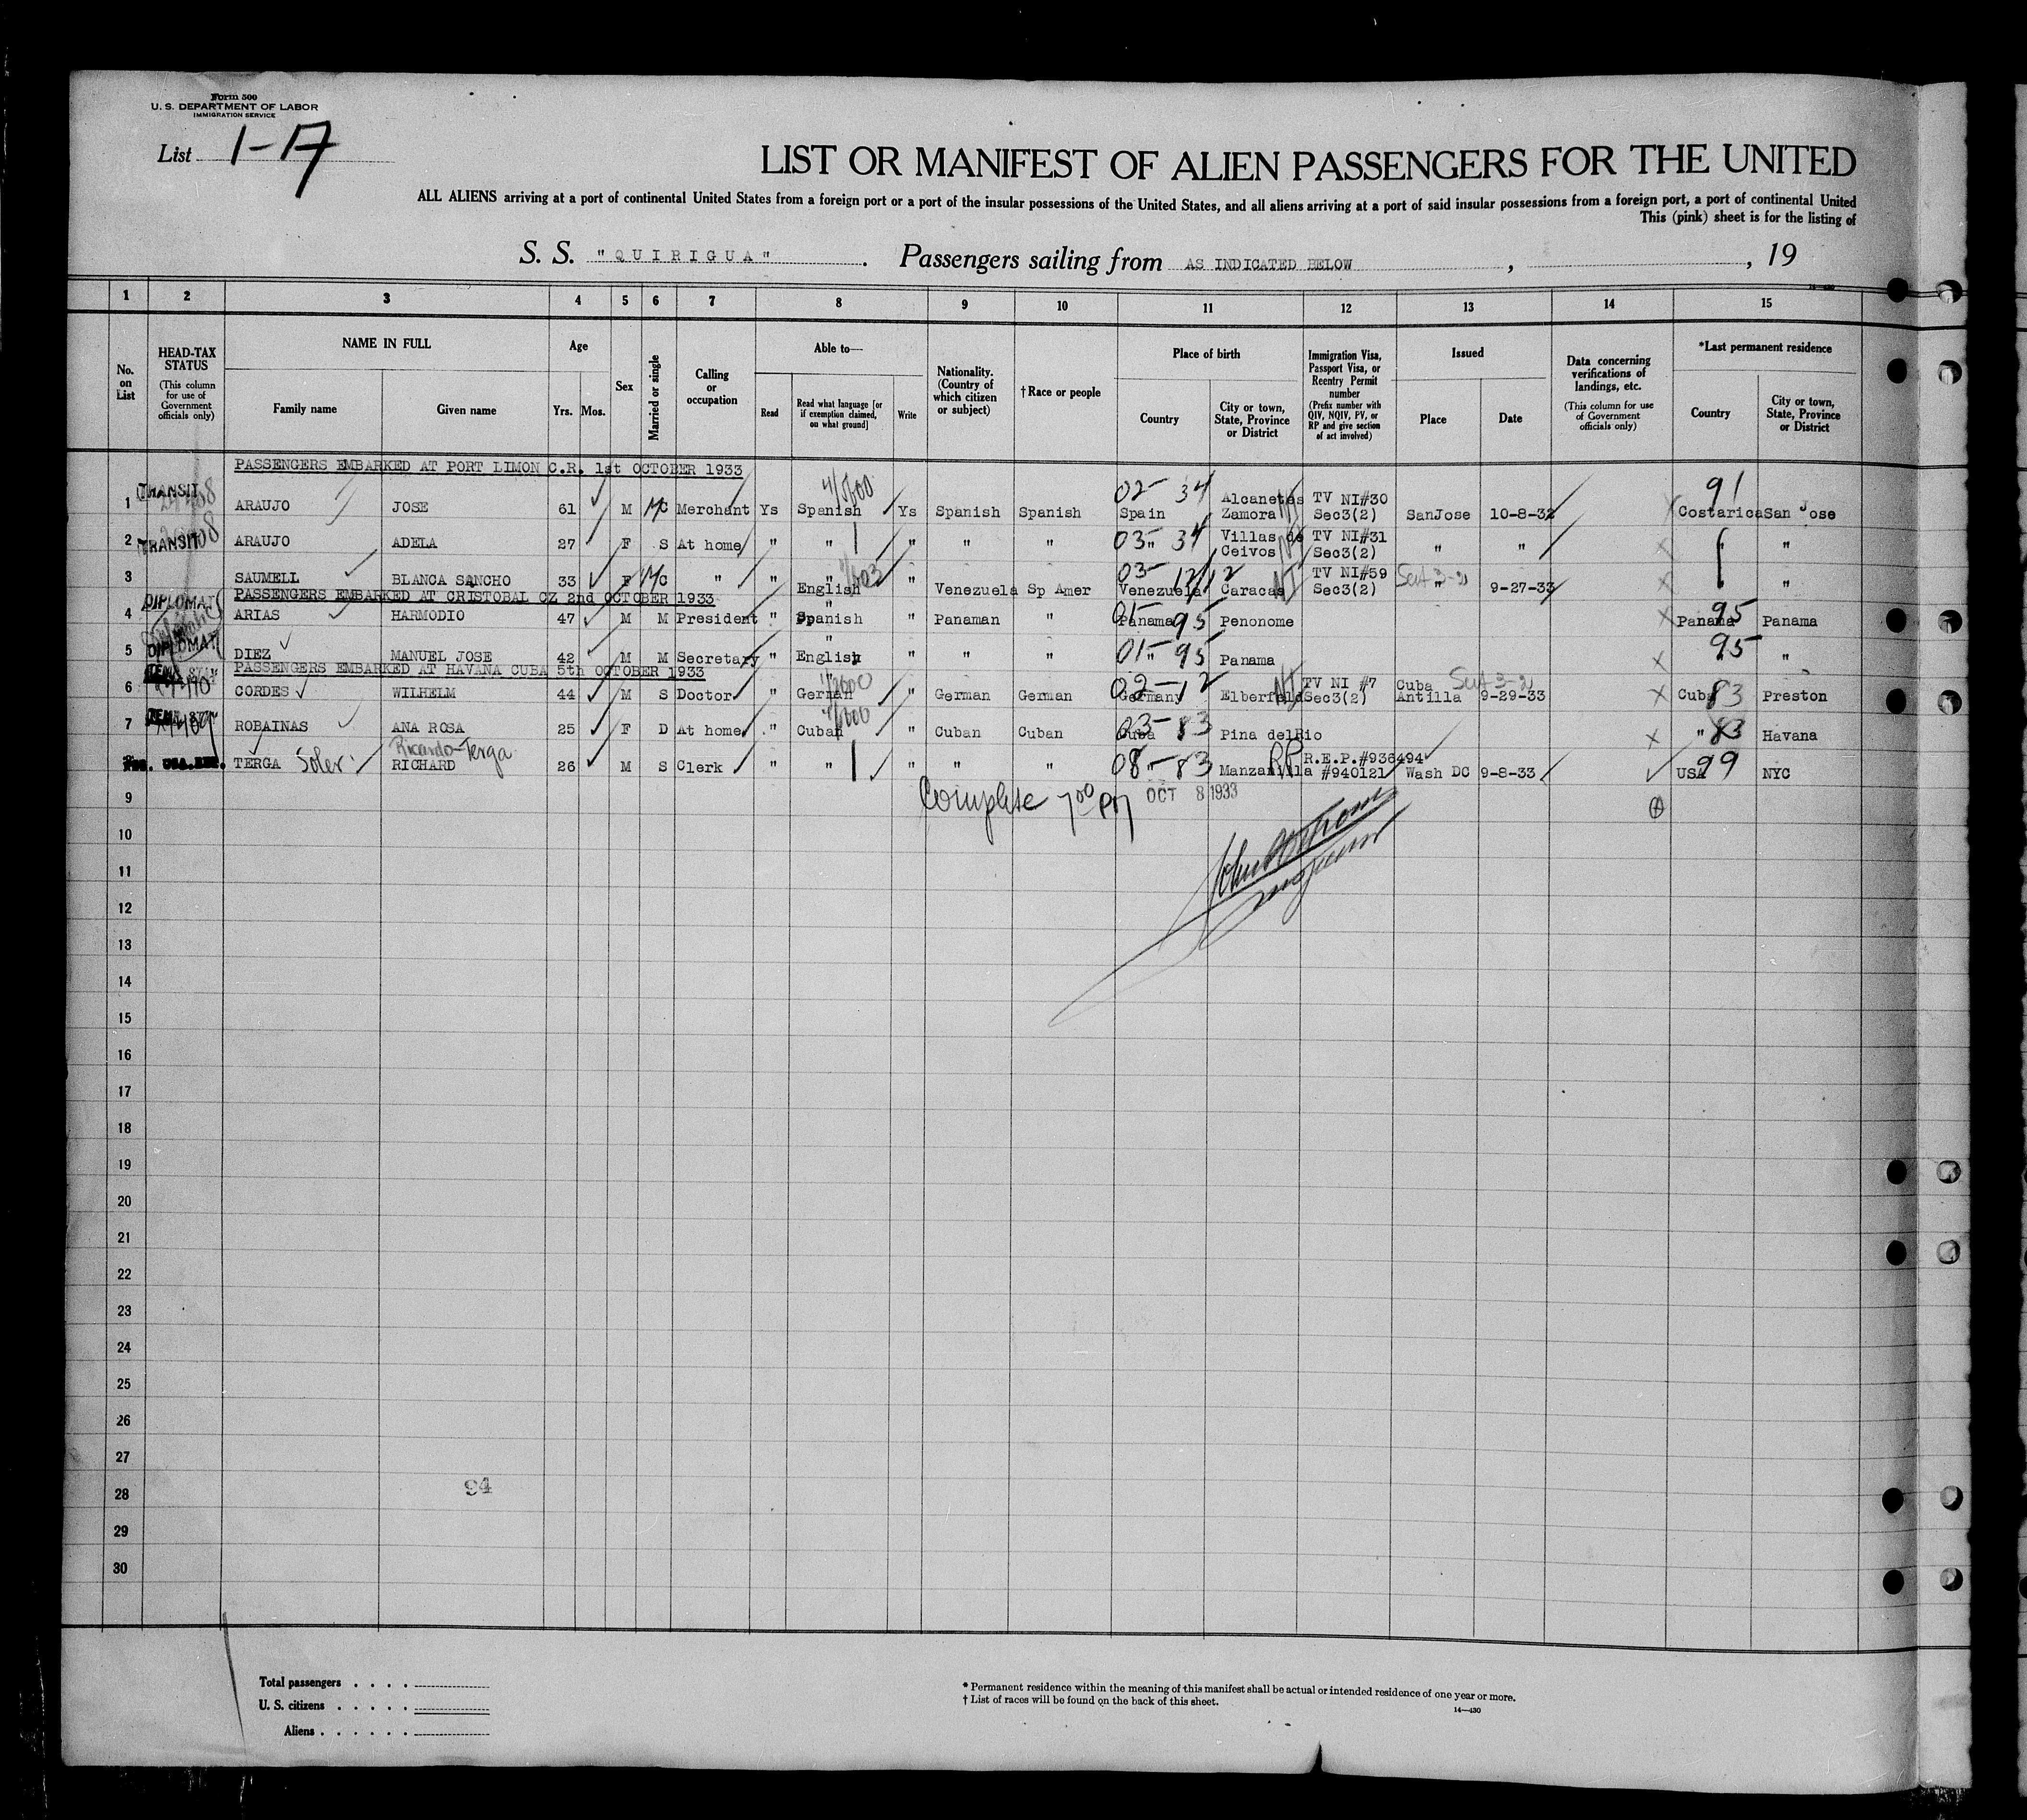 Form 500
U. S. DEPARTMENT OF LABOR
IMMIGRATION SERVICE
List 1-17
LIST OR MANIFEST OF ALIEN PASSENGERS FOR THE UNITED
ALL ALIENS arriving at a port of continental United States from a foreign port or a port of the insular possessions of the United States, and all aliens arriving at a port of said insular possessions from a foreign port, a port of continental United
This (pink) sheet is for the listing of
S. S. "QUIRIGUA". Passengers sailing from AS INDICATED BELOW , , 19
14-430
1 2 3 4 5 6 7 8 9 10 11 12 13 14 15
No. on List
HEAD-TAX STATUS
(This column for use of Government officials only)
NAME IN FULL
Family name Given name
Age
Yrs. Mos.
Sex
Married or single
Calling or occupation
Able to—
Read Read what language [or if exemption claimed, on what ground] Write
Nationality. (Country of which citizen or subject)
†Race or people
Place of birth
Country City or town, State, Province or District
Immigration Visa, Passport Visa, or Reentry Permit number
(Prefix number with QIV, NQIV, PV, or RP and give section of act involved)
Issued
Place Date
Data concerning verifications of landings, etc.
(This column for use of Government officials only)
*Last permanent residence
Country City or town, State, Province or District
PASSENGERS EMBARKED AT PORT LIMON C.R. 1st OCTOBER 1933
4/5600 02- 34 91
1 TRANSIT ARAUJO JOSE 61 M C Merchant Ys Spanish Ys Spanish Spanish Spain Alcanetes Zamora TV NI#30 Sec3(2) SanJose 10-8-32 Costarica San Jose
2 TRANSIT ARAUJO ADELA 27 F S At home " " " " " 03- " 34 Villas de Ceivos TV NI#31 Sec3(2) " " " "
3 SAUMELL BLANCA SANCHO 33 F C " " " English " Venezuela Sp Amer 03- 12 Venezuela Caracas NI TV NI#59 Sec3(2) " 9-27-33 " "
PASSENGERS EMBARKED AT CRISTOBAL CZ 2nd OCTOBER 1933
4 DIPLOMAT ARIAS HARMODIO 47 M M President " " Spanish " Panaman " 01- 95 Panama Penonome 95 Panama Panama
5 DIPLOMAT DIEZ MANUEL JOSE 42 M M Secretary " " English " " " 01- " 95 Panama 95 " "
PASSENGERS EMBARKED AT HAVANA CUBA 5th OCTOBER 1933
6 CORDES WILHELM 44 M S Doctor " " German " German German 02-12 Germany Elberfeld NI TV NI #7 Sec3(2) Cuba Antilla 9-29-33 Cuba 83 Preston
7 ROBAINAS ANA ROSA 25 F D At home " Cuban " Cuban Cuban 03- 83 Cuba Pina delRio " 83 Havana
TERGA Soler Ricardo-Terga RICHARD 26 M S Clerk " " " " " 08- " 83 Manzanilla RP R.E.P.#936494 #940121 Wash DC 9-8-33 USA 99 NYC
9 Complete 7 00 PM OCT 8 1933
10
11
12
13
14
15
16
17
18
19
20
21
22
23
24
25
26
27
28 94
29
30
Total passengers . . . .
U. S. citizens . . . . .
Aliens . . . . . .
* Permanent residence within the meaning of this manifest shall be actual or intended residence of one year or more.
† List of races will be found on the back of this sheet.
14—430